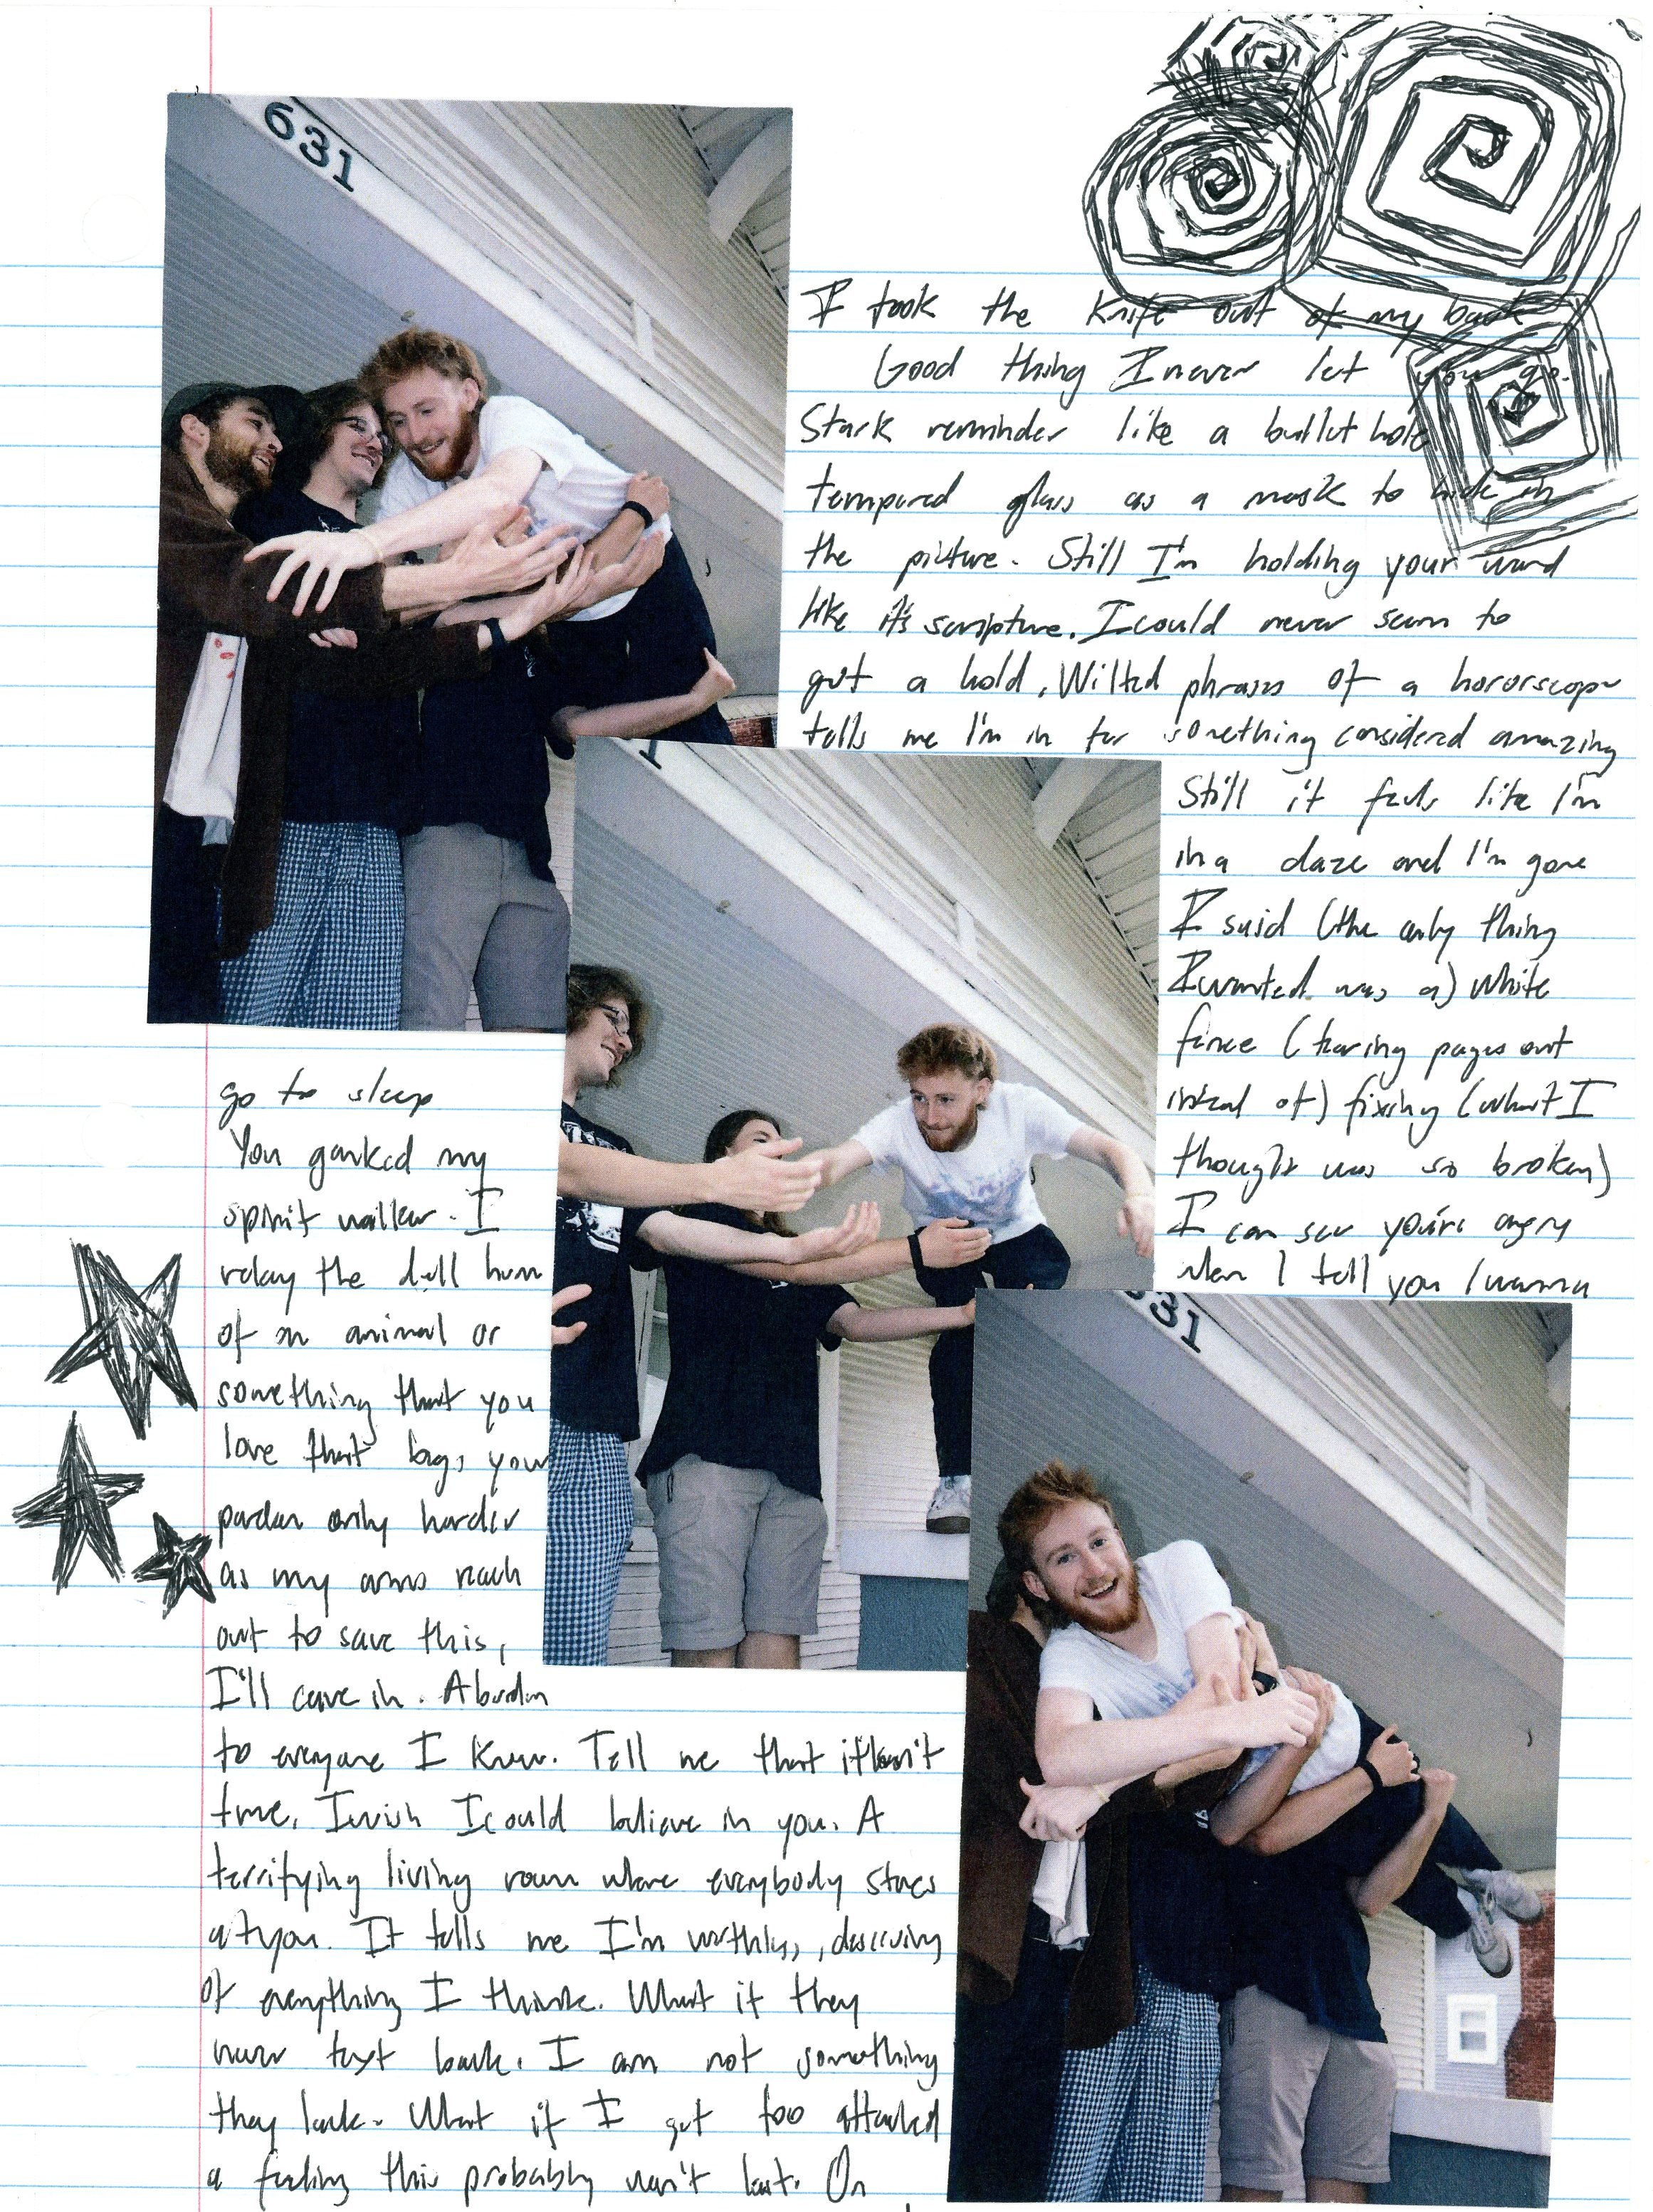 631
I took the knife out of my back
Good thing I never let you go.
Stark reminder like a bullet hole
tempered glass as a mask to hide in
the picture. Still I'm holding your word
like it's scripture. I could never seem to
get a hold. Wilted phrases of a hororscope
tells me I'm in for something considered amazing
Still it feels like I'm
in a daze and I'm gone
I said (the only thing
I wanted was a) white
fence (tearing pages out
instead of) fixing (what I
thought was so broken)
I can see you're angry
when I tell you I wanna
go to sleep
You my
spirit I
relay the dull hum
of an animal or
something that you
love that your
pardon only harder
as my arms reach
out to save this,
I'll cave in. A burden
to everyone I knew. Tell me that it isn't
true, I wish I could believe in you. A
terrifying living room where everybody stares
at you. It tells me I'm worthless, deserving
of everything I think. What if they
never text back. I am not something
they lack. What if I get too attached
a feeling this probably won't last. On
1
631